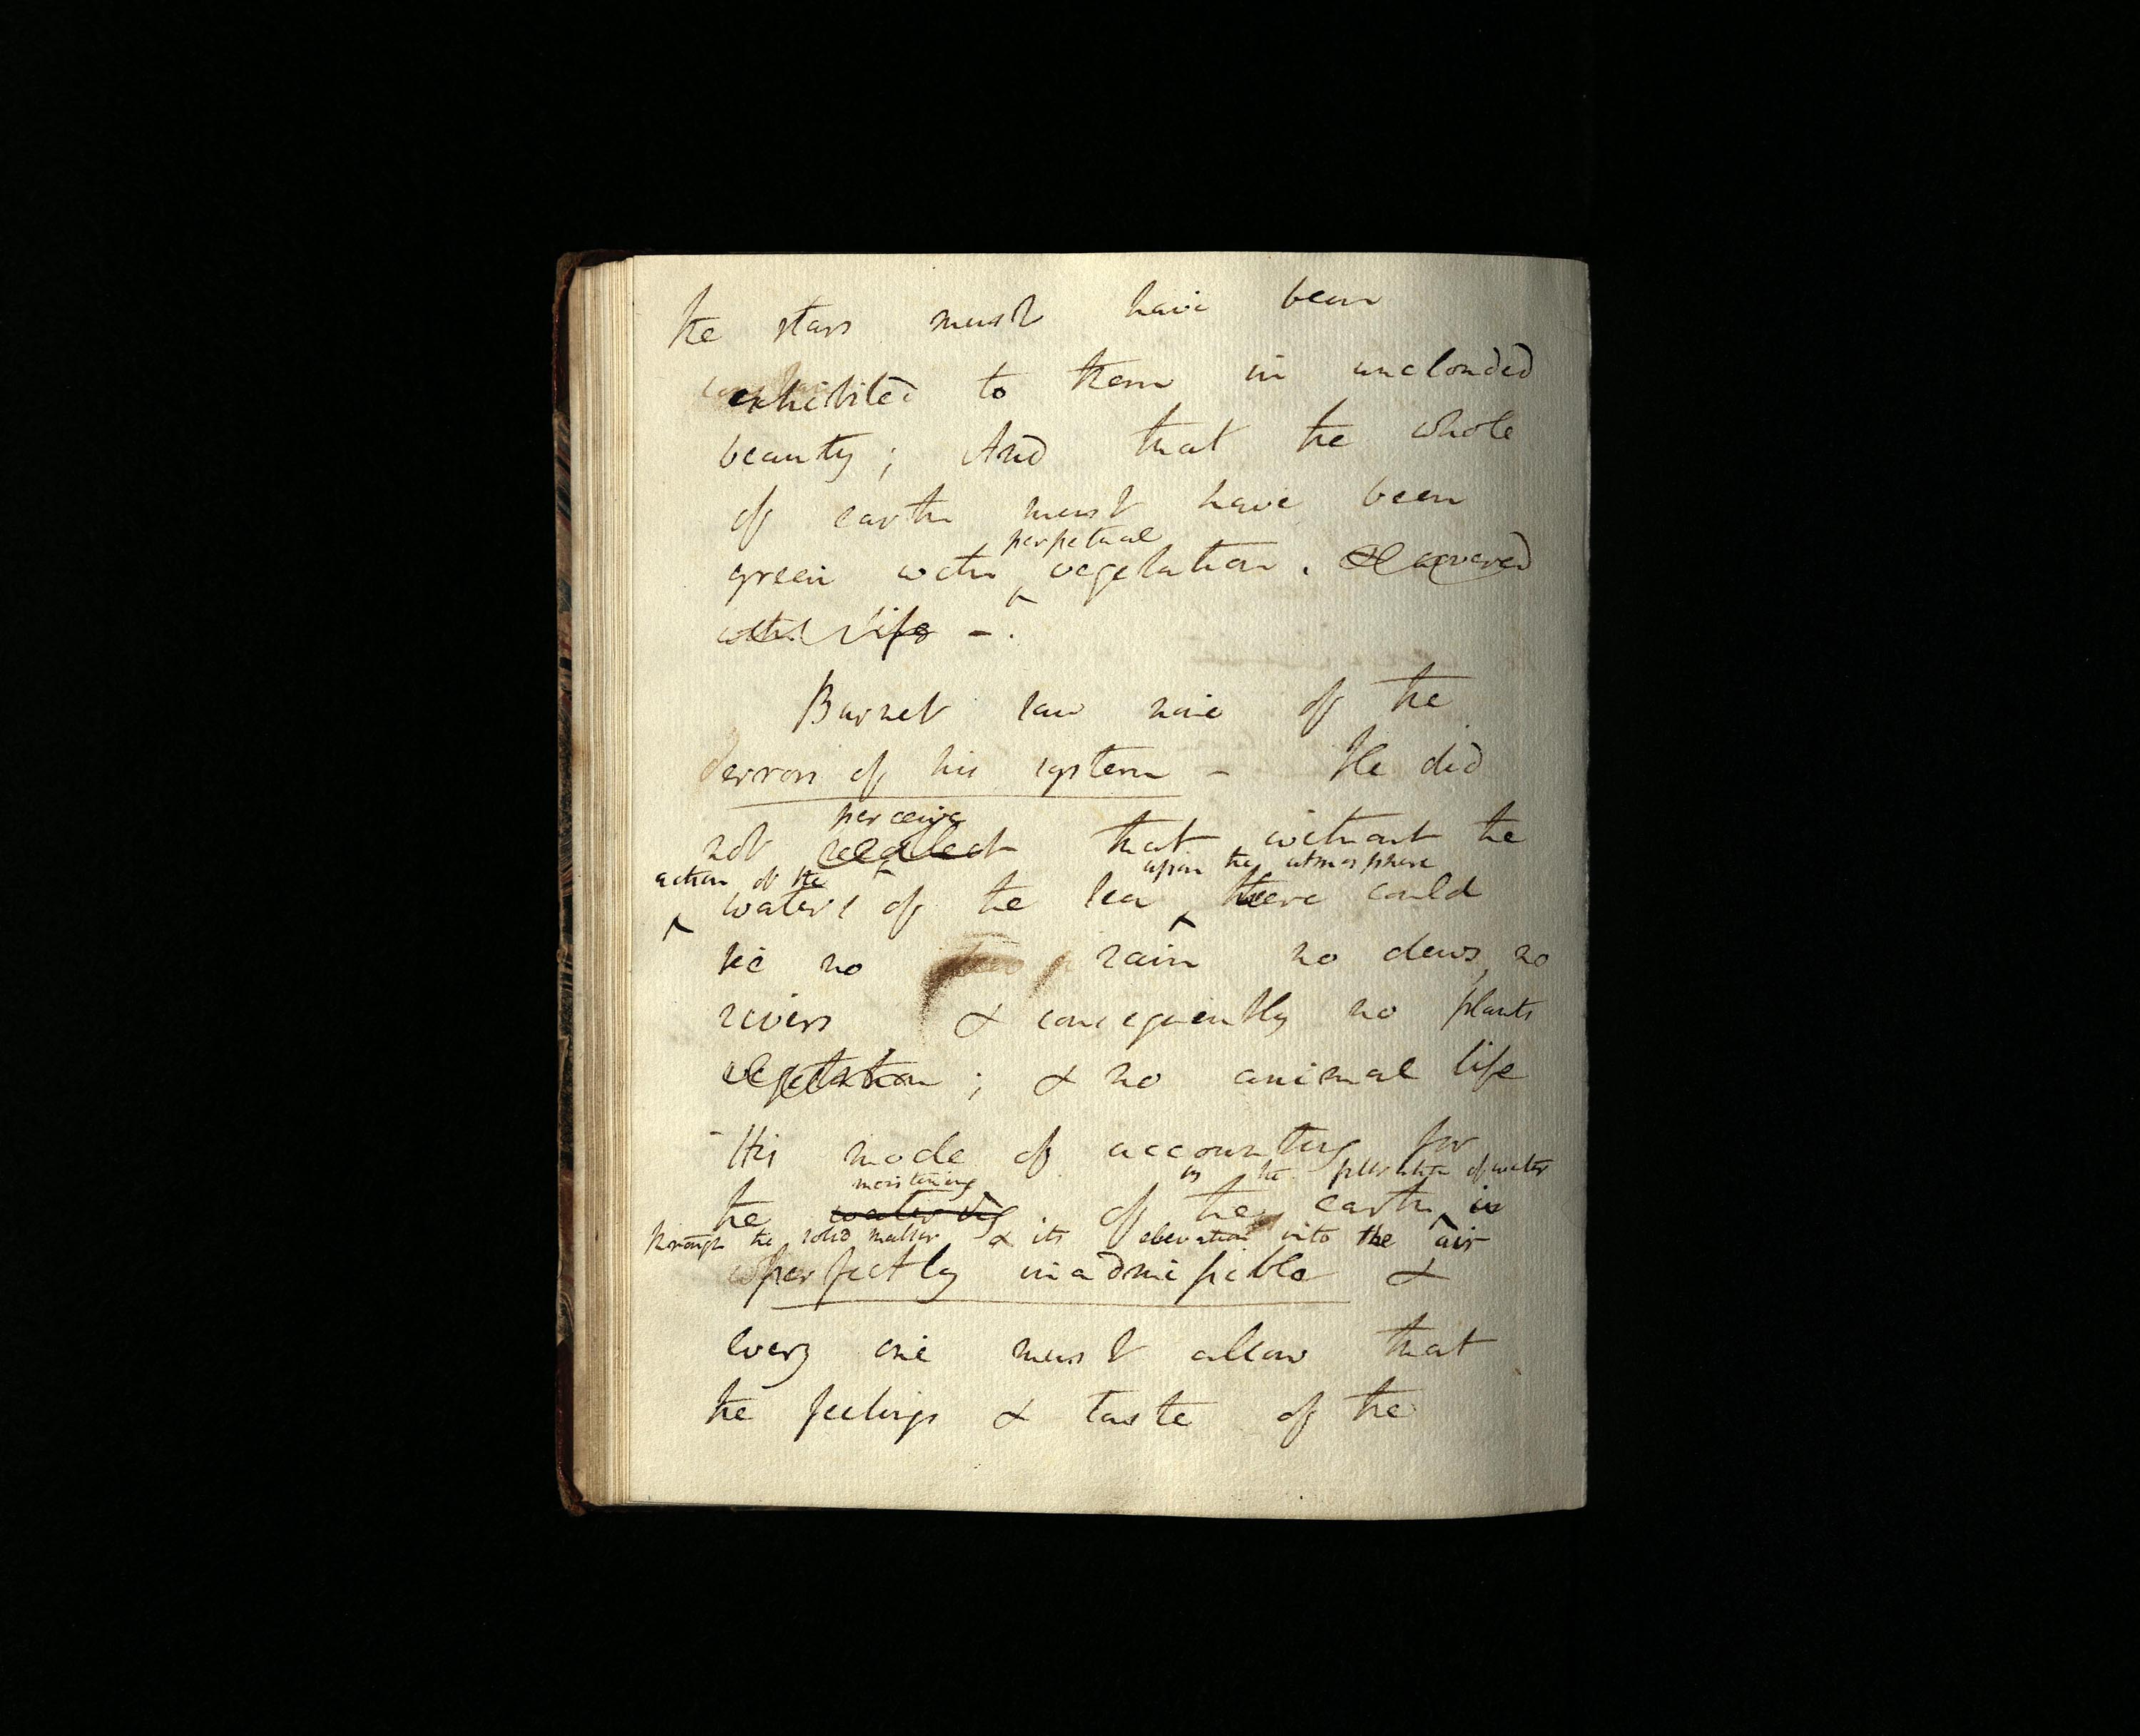 the stars must have been
exhibited to them in unclouded
beauty; And that the whole
of earth must have been
perpetual
green with vegetation. & covered
with life -.
Burnet saw none of the
errors of his system - He did
perceive
not neglect that without the
action of the upon the atmosphere
waters of the sea there could
be no rain no dews, no
rivers & consequently no plants
vegetation; & no animal life
- His mode of accounting for
moistening by the of water
the watering of the earth is
through the solid matter & its elevation into the air
perfectly inadmissible &
every one must allow that
the feelings & taste of the